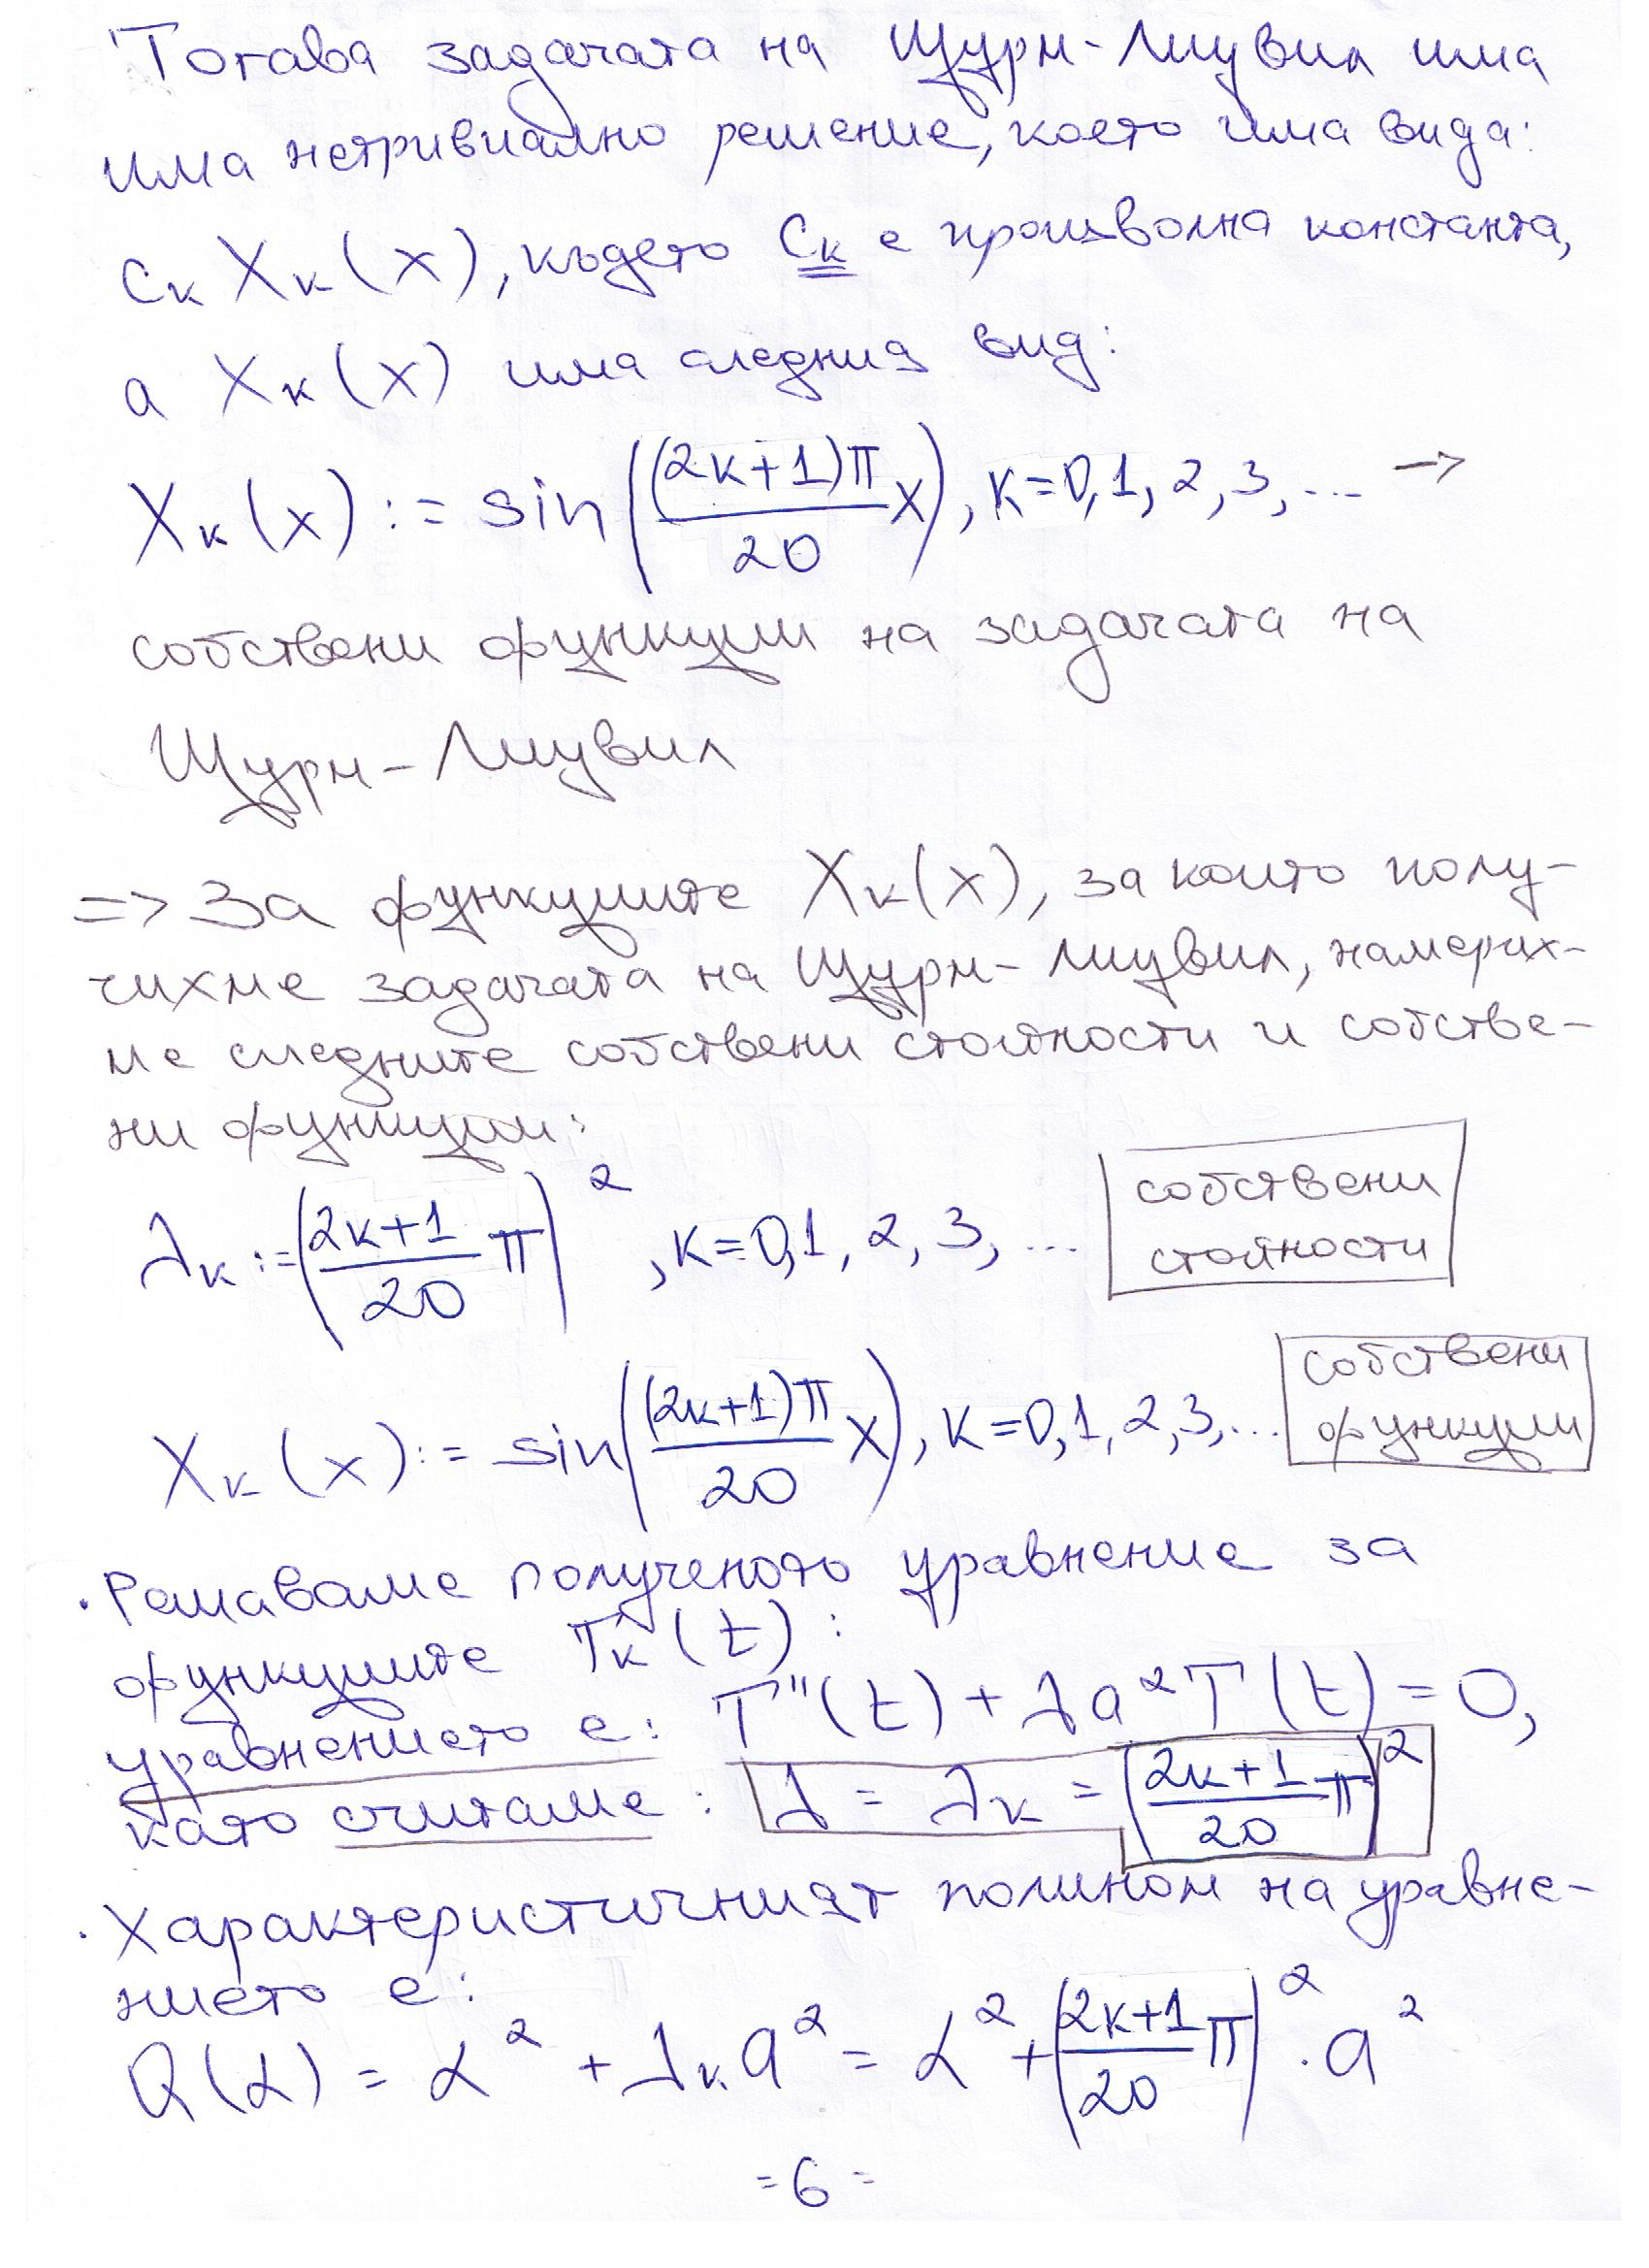 Тогава задачата на Щурм-Лиувил има
има нетривиално решение, което има вида:
Cк Xк(x), където Cк е произволна константа,
а Xк(x) има следния вид:
Xк(x) := sin((2к+1)π/20 x), к=0,1,2,3,... →
собствени функции на задачата на
Щурм-Лиувил
=> За функциите Xк(x), за които полу-
чихме задачата на Щурм-Лиувил, намерих-
ме следните собствени стойности и собстве-
ни функции:
λк := (2к+1/20 π)², к=0,1,2,3,... собствени стойности
Xк(x) := sin((2к+1)π/20 x), к=0,1,2,3,... собствени функции
· Решаваме полученото уравнение за
функциите Tк(t):
уравнението е: T''(t) + λa²T(t) = 0,
като считаме: λ = λк = (2к+1/20 π)²
· Характеристичният полином на уравне-
нието е:
Q(α) = α² + λк a² = α² + (2к+1/20 π)² . a²
= 6 =